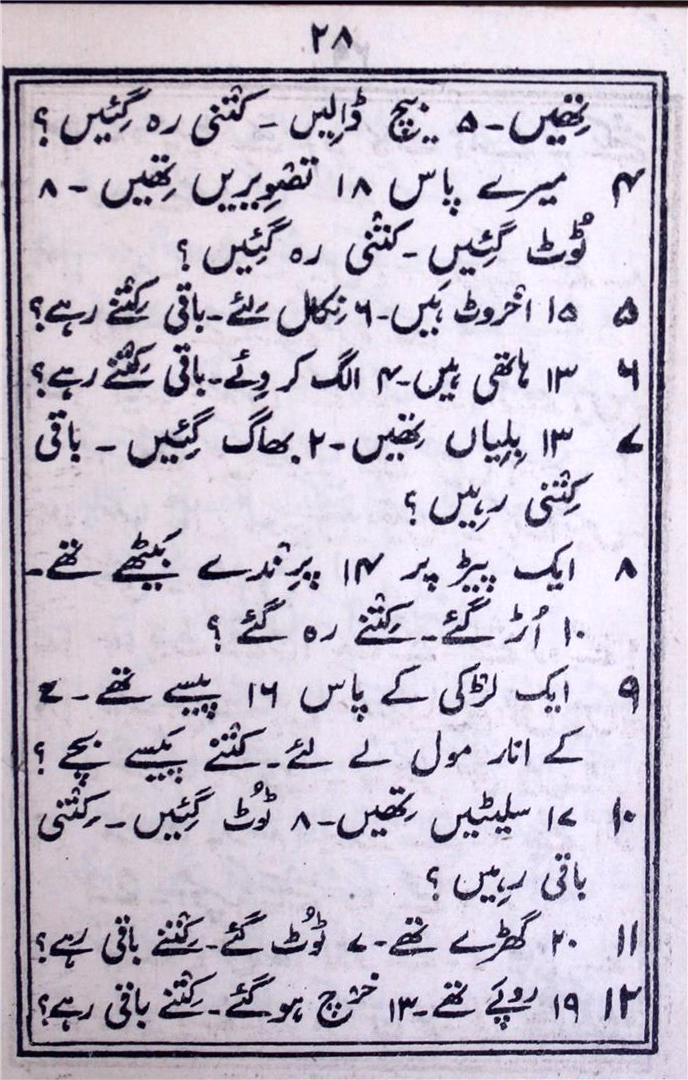 ۲۸
تھیں۔ ۵ بیچ ڈالیں۔ کتنی رہ گئیں؟
۴ میرے پاس ۱۸ تصویریں تھیں۔ ۸
ٹوٹ گئیں۔ کتنی رہ گئیں؟
۵ ۱۵ اخروٹ ہیں۔ ۶ نکال لئے۔ باقی کتنے رہے؟
۶ ۱۳ ہاتھی ہیں۔ ۴ الگ کر دئے۔ باقی کتنے رہے؟
۷ ۱۳ بلیاں تھیں۔ ۲ بھاگ گئیں۔ باقی
کتنی رہیں؟
۸ ایک پیڑ پر ۱۴ پرندے بیٹھے تھے۔
۱۰ اُڑ گئے۔ کتنے رہ گئے؟
۹ ایک لڑکی کے پاس ۱۶ پیسے تھے۔ ۷
کے انار مول لے لئے۔ کتنے پیسے بچے؟
۱۰ ۱۷ سلیٹیں تھیں۔ ۸ ٹوٹ گئیں۔ کتنی
باقی رہیں؟
۱۱ ۲۰ گھڑے تھے۔ ۷ ٹوٹ گئے۔ کتنے باقی رہے؟
۱۲ ۱۹ روپے تھے۔ ۱۳ خرچ ہو گئے۔ کتنے باقی رہے؟